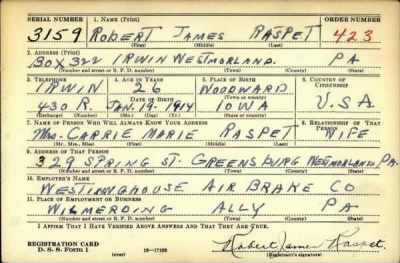 SERIAL NUMBER 1. NAME (Print) ORDER NUMBER
3159 ROBERT JAMES RASPET 423
(First) (Middle) (Last)
2. ADDRESS (Print)
BOX 322 IRWIN WESTMORLAND. PA
(Number and street or R. F. D. number) (Town) (County) (State)
3. TELEPHONE 4. AGE IN YEARS 5. PLACE OF BIRTH 6. COUNTRY OF CITIZENSHIP
IRWIN 26 WOODWARD
DATE OF BIRTH (Town or county)
430 R. JAN. 19. 1914 IOWA U.S.A
(Exchange) (Number) (Mo.) (Day) (Yr.) (State or country)
7. NAME OF PERSON WHO WILL ALWAYS KNOW YOUR ADDRESS 8. RELATIONSHIP OF THAT PERSON
MRS. CARRIE MARIE RASPET WIFE
(Mr., Mrs., Miss) (First) (Middle) (Last)
9. ADDRESS OF THAT PERSON
329 SPRING ST. GREENSBURG WESTMORLAND, PA.
(Number and street or R. F. D. number) (Town) (County) (State)
10. EMPLOYER'S NAME
WESTINGHOUSE AIR BRAKE CO
11. PLACE OF EMPLOYMENT OR BUSINESS
WILMERDING ALLY PA
(Number and street or R. F. D. number) (Town) (County) (State)
I AFFIRM THAT I HAVE VERIFIED ABOVE ANSWERS AND THAT THEY ARE TRUE.
REGISTRATION CARD
D. S. S. Form 1 16—17105 Robert James Raspet.
(over) (Registrant's signature)